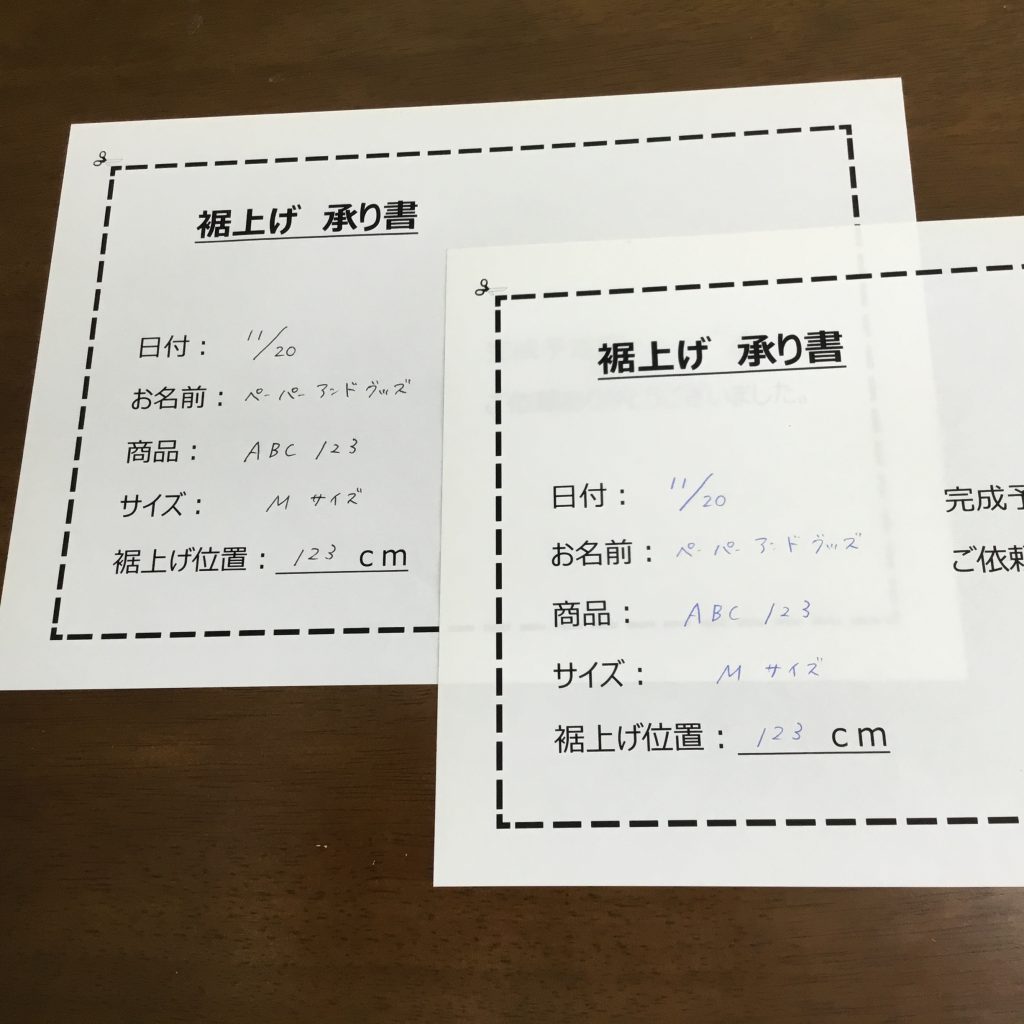 裾上げ 承り書
日付： 11/20
お名前： ペーパーアンドグッズ
商品： ABC 123
サイズ： M サイズ
裾上げ位置： 123 cm
いました。
裾上げ 承り書
日付： 11/20
お名前： ペーパーアンドグッズ
商品： ABC 123
サイズ： M サイズ
裾上げ位置： 123 cm
完成予
ご依頼